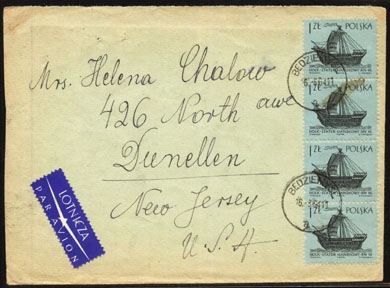 Mrs. Helena Chalow
426 North awe
Dunellen
New Jersey
U.S.A.
LOTNICZA
PAR AVION
1 ZŁ POLSKA
1 ZŁ POLSKA
1 ZŁ POLSKA
1 ZŁ POLSKA